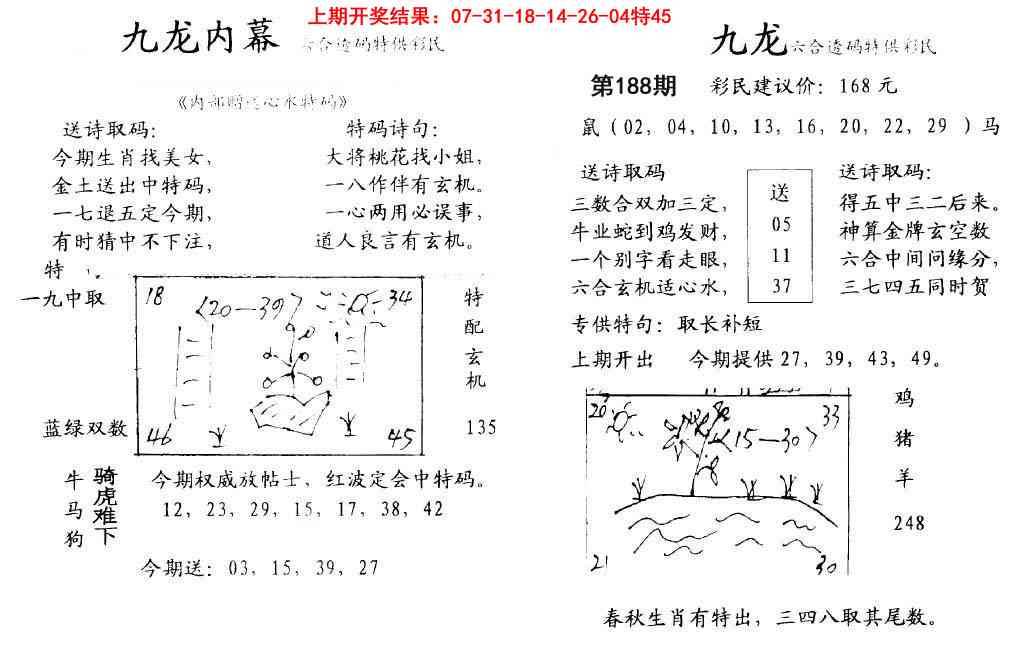 上期开奖结果：07-31-18-14-26-04特45
九龙内幕 六合透码特供彩民
《内部赠送心水特码》
送诗取码：
今期生肖找美女，
金土送出中特码，
一七退五定今期，
有时猜中不下注，
特码诗句：
大将桃花找小姐，
一八作伴有玄机。
一心两用必误事，
道人良言有玄机。
特
一九中取
蓝绿双数
18
〈20—39〉
34
46
45
特配玄机
135
牛马狗
骑虎难下
今期权威放帖士，红波定会中特码。
12，23，29，15，17，38，42
今期送：03，15，39，27
九龙 六合透码特供彩民
第188期 彩民建议价：168元
鼠（02，04，10，13，16，20，22，29）马
送诗取码
三数合双加三定，
牛业蛇到鸡发财，
一个别字看走眼，
六合玄机适心水，
送
05
11
37
送诗取码：
得五中三二后来。
神算金牌玄空数
六合中间问缘分，
三七四五同时贺
专供特句：取长补短
上期开出 今期提供27，39，43，49。
20
33
〈15—30〉
21
30
鸡
猪
羊
248
春秋生肖有特出，三四八取其尾数。